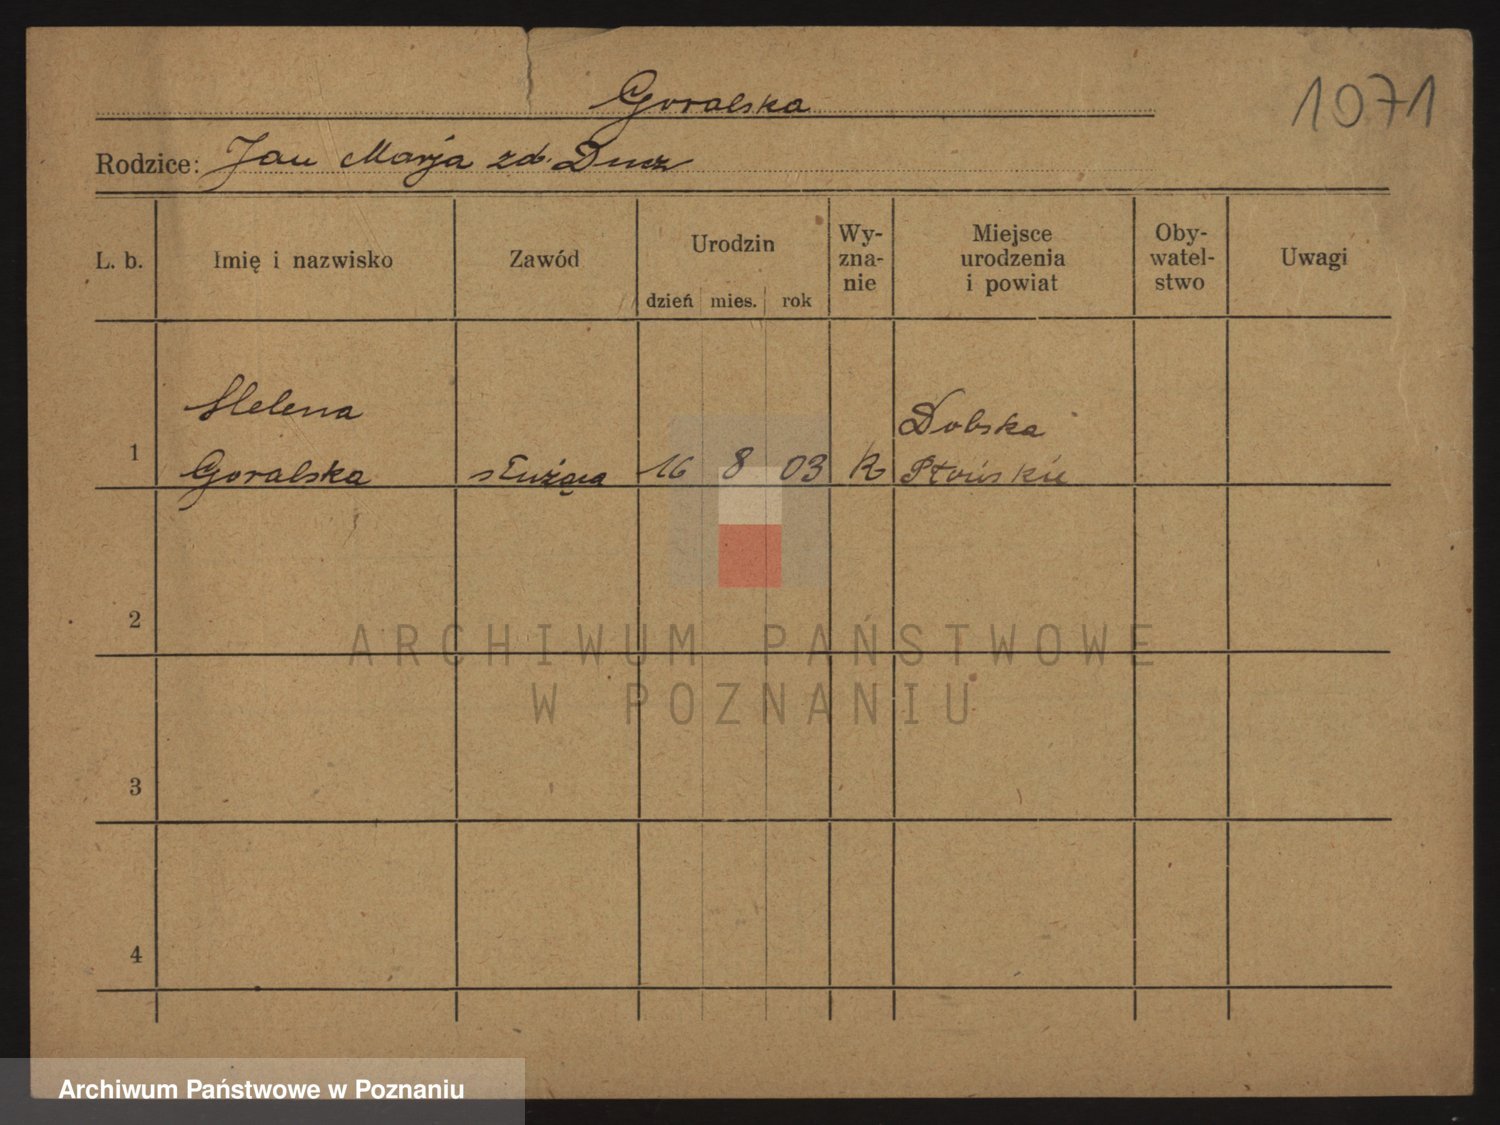 Goralska
1071
Rodzice: Jan Marja zd. Ducz
L. b. Imię i nazwisko Zawód Urodzin dzień mies. rok Wy-zna-nie Miejsce urodzenia i powiat Oby-watel-stwo Uwagi
Helena
Dobska
1 Goralska służąca 16 8 03 R Płońskie
2
ARCHIWUM PAŃSTWOWE
W POZNANIU
3
4
Archiwum Państwowe w Poznaniu